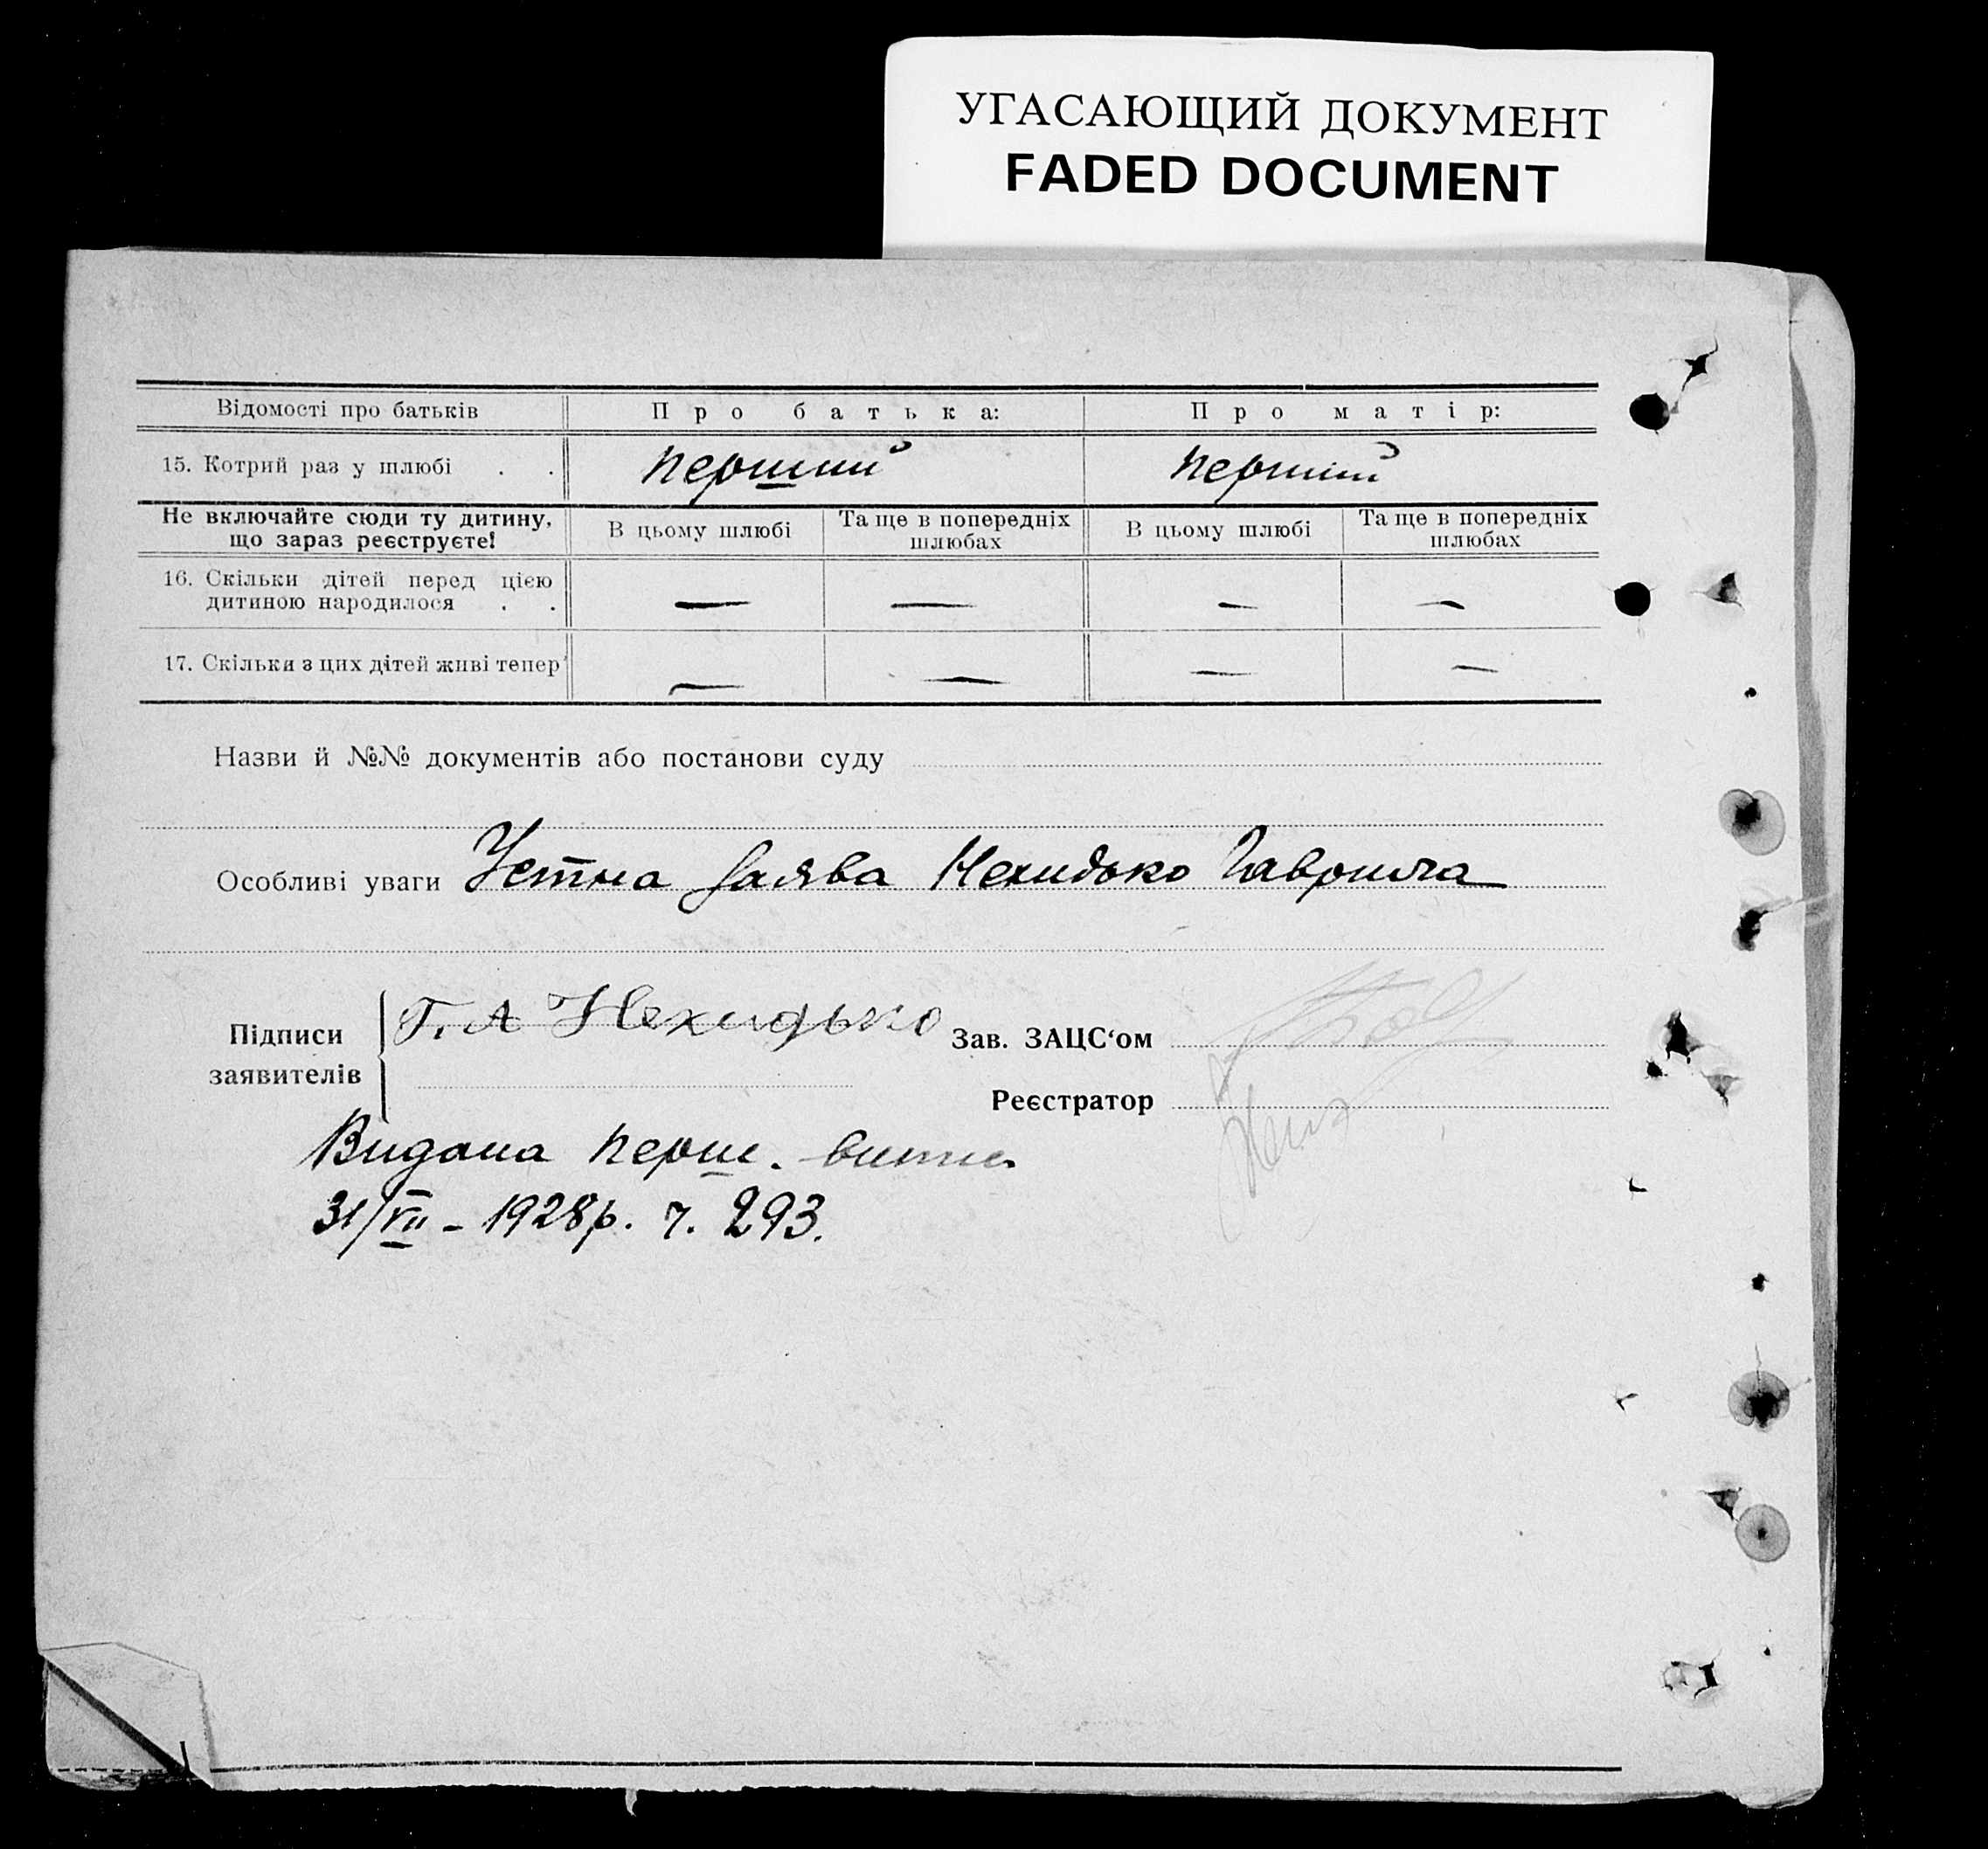 УГАСАЮЩИЙ ДОКУМЕНТ
FADED DOCUMENT
Відомості про батьків Про батька: Про матір:
15. Котрий раз у шлюбі . . перший перший
Не включайте сюди ту дитину, що зараз реєструєте! В цьому шлюбі Та ще в попередніх шлюбах В цьому шлюбі Та ще в попередніх шлюбах
16. Скільки дітей перед цією
дитиною народилося . . — — — —
17. Скільки з цих дітей живі тепер — — — —
Назви й №№ документів або постанови суду
Особливі уваги Устна заява Нехидько Гаврила
Підписи заявителів Г. А Нехидько Зав. ЗАЦС‘ом
Реєстратор
Видана перш.
31/VII – 1928 р. ч. 293.